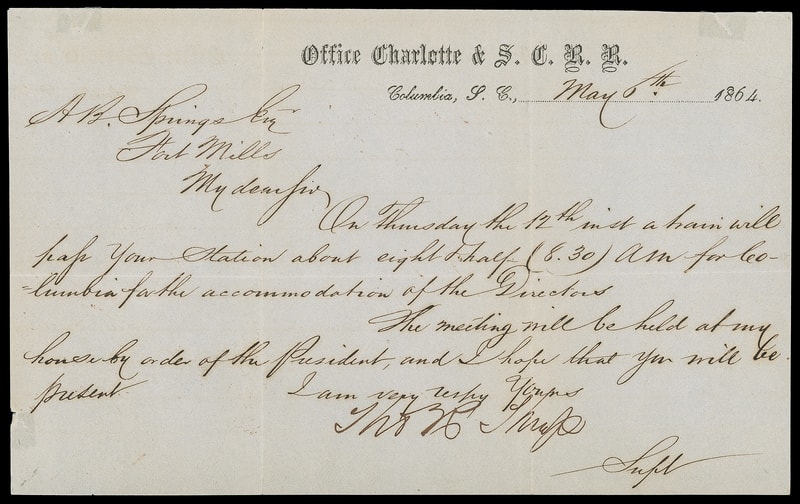 Office Charlotte & S. C. R. R.
Columbia, S. C., May 6th 1864.
A B. Springs Esq
Fort Mills
My dear Sir
On Thursday the 12th inst a train will
pass Your Station about eight & half (8.30) AM for Co-
=lumbia for the accommodation of the Directors
The meeting will be held at my
house by order of the President, and I hope that You will be
present.
I am very respy Yours
Supt